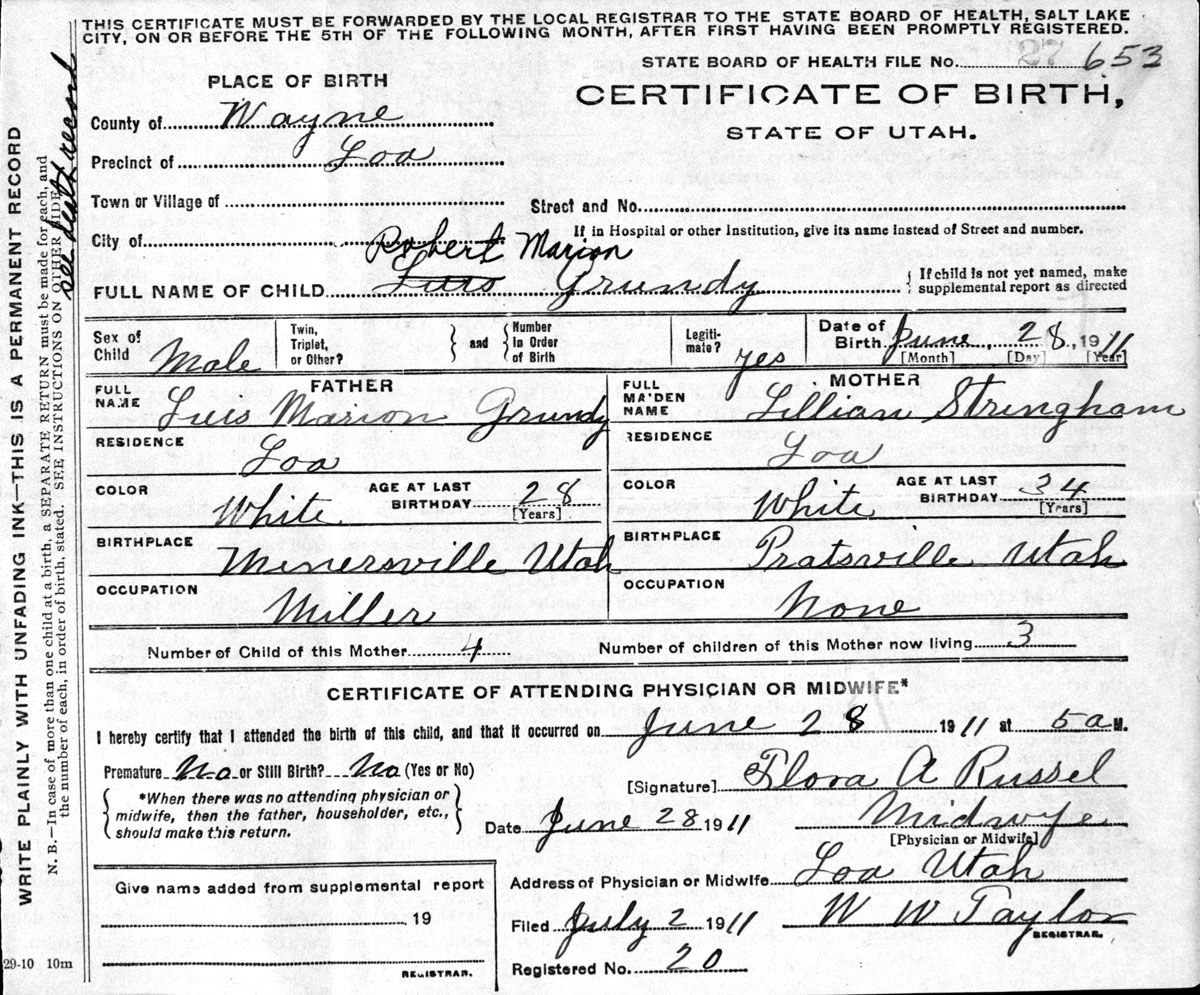 THIS CERTIFICATE MUST BE FORWARDED BY THE LOCAL REGISTRAR TO THE STATE BOARD OF HEALTH, SALT LAKE
CITY, ON OR BEFORE THE 5TH OF THE FOLLOWING MONTH, AFTER FIRST HAVING BEEN PROMPTLY REGISTERED.
WRITE PLAINLY WITH UNFADING INK—THIS IS A PERMANENT RECORD
N. B.—In case of more than one child at a birth, a SEPARATE RETURN must be made for each, and
the number of each, in order of birth, stated. SEE INSTRUCTIONS ON OTHER SIDE.
See death record
STATE BOARD OF HEALTH FILE No. 653
PLACE OF BIRTH
CERTIFICATE OF BIRTH,
STATE OF UTAH.
County of Wayne
Precinct of Loa
Town or Village of
Street and No.
City of
If in Hospital or other Institution, give its name instead of Street and number.
Robert Marion
FULL NAME OF CHILD Luis Grundy
If child is not yet named, make
supplemental report as directed
Sex of Child Male
Twin, Triplet, or Other?
and
Number In Order of Birth
Legiti-mate? yes
Date of Birth June, 28, 1911
[Month] [Day] [Year]
FATHER
FULL NAME Luis Marion Grundy
MOTHER
FULL MAIDEN NAME Lillian Stringham
RESIDENCE Loa
RESIDENCE Loa
COLOR White AGE AT LAST BIRTHDAY 28 [Years]
COLOR White AGE AT LAST BIRTHDAY 34 [Years]
BIRTHPLACE Minersville Utah
BIRTHPLACE Pratsville Utah
OCCUPATION Miller
OCCUPATION None
Number of Child of this Mother 4
Number of children of this Mother now living 3
CERTIFICATE OF ATTENDING PHYSICIAN OR MIDWIFE*
I hereby certify that I attended the birth of this child, and that it occurred on June 28 1911 at 5 a M.
Premature No or Still Birth? No (Yes or No)
[Signature] Flora A Russel
*When there was no attending physician or
midwife, then the father, householder, etc.,
should make this return.
Date June 28 1911
Midwife
[Physician or Midwife]
Give name added from supplemental report
19
REGISTRAR.
Address of Physician or Midwife Loa Utah
Filed July 2 1911 W W Taylor
REGISTRAR.
Registered No. 20
29-10 10m